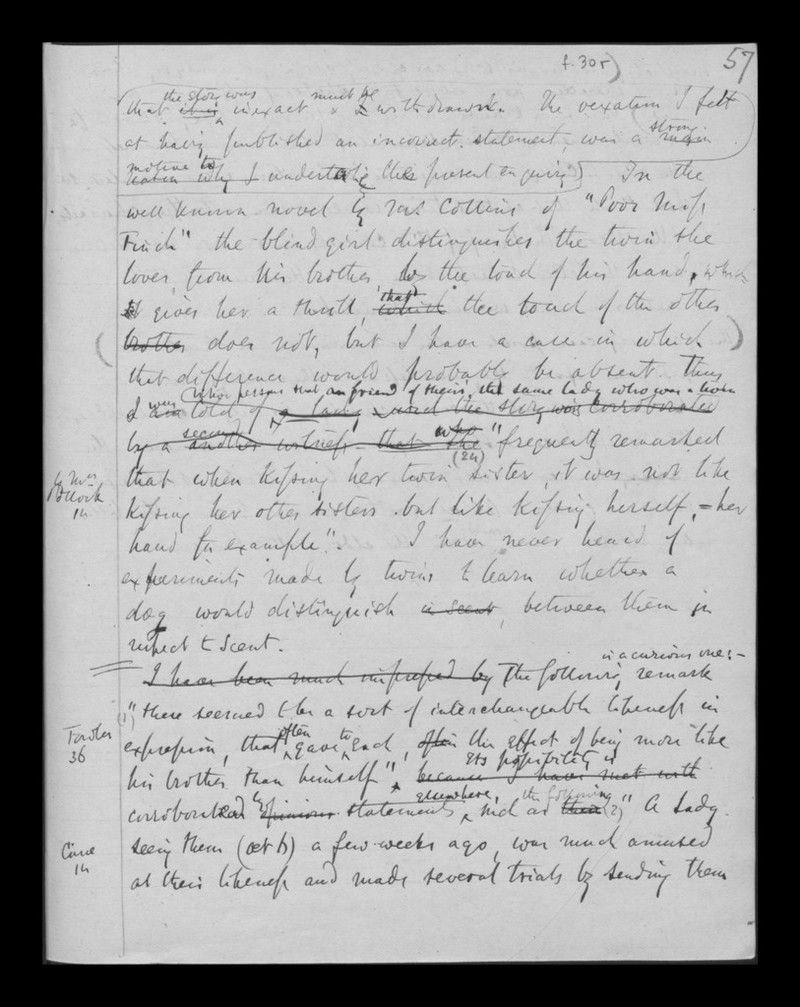 f. 30r)
57
the story was must be
that it is inexact & withdrawn. The vexation I felt
at having published an incorrect statement, was a strong
motive to
reason why I undertake this present enquiry] In the
well known novel by Collins of "Poor Miss
Finch" the blind girl distinguishes the twin she
loves from his brother by the touch of his hand, which
gives her a thrill, that which the touch of the other
brother does not, but I have a case in which
that difference would probably be absent. Thus
was friend of theirs, the same lady who was a twin
I am told of a lady & the story was corroborated
second who
by a another witness that she "frequently remarked
(24)
that when kissing her twin sister, it was not like
by Mrs
Pollock
14
kissing her other sisters but like kissing herself, – her
hand for example". I have never heard of
experiments made by twins to learn whether a
dog would distinguish a scent, between them in
respect to scent.
is a curious one:–
I have been much impressed by The following remark
(1) "there seemed to be a sort of interchangeable likeness in
Fowler
36
often to
expression, that gave each, often the effect of being more like
its possibility is
his brother than himself" because I have met with
elsewhere, the following
corroborated by opinions statements such as these (2) "A lady
seeing them (æt 6) a few weeks ago, was much amused
14
at their likeness and made several trials by sending them